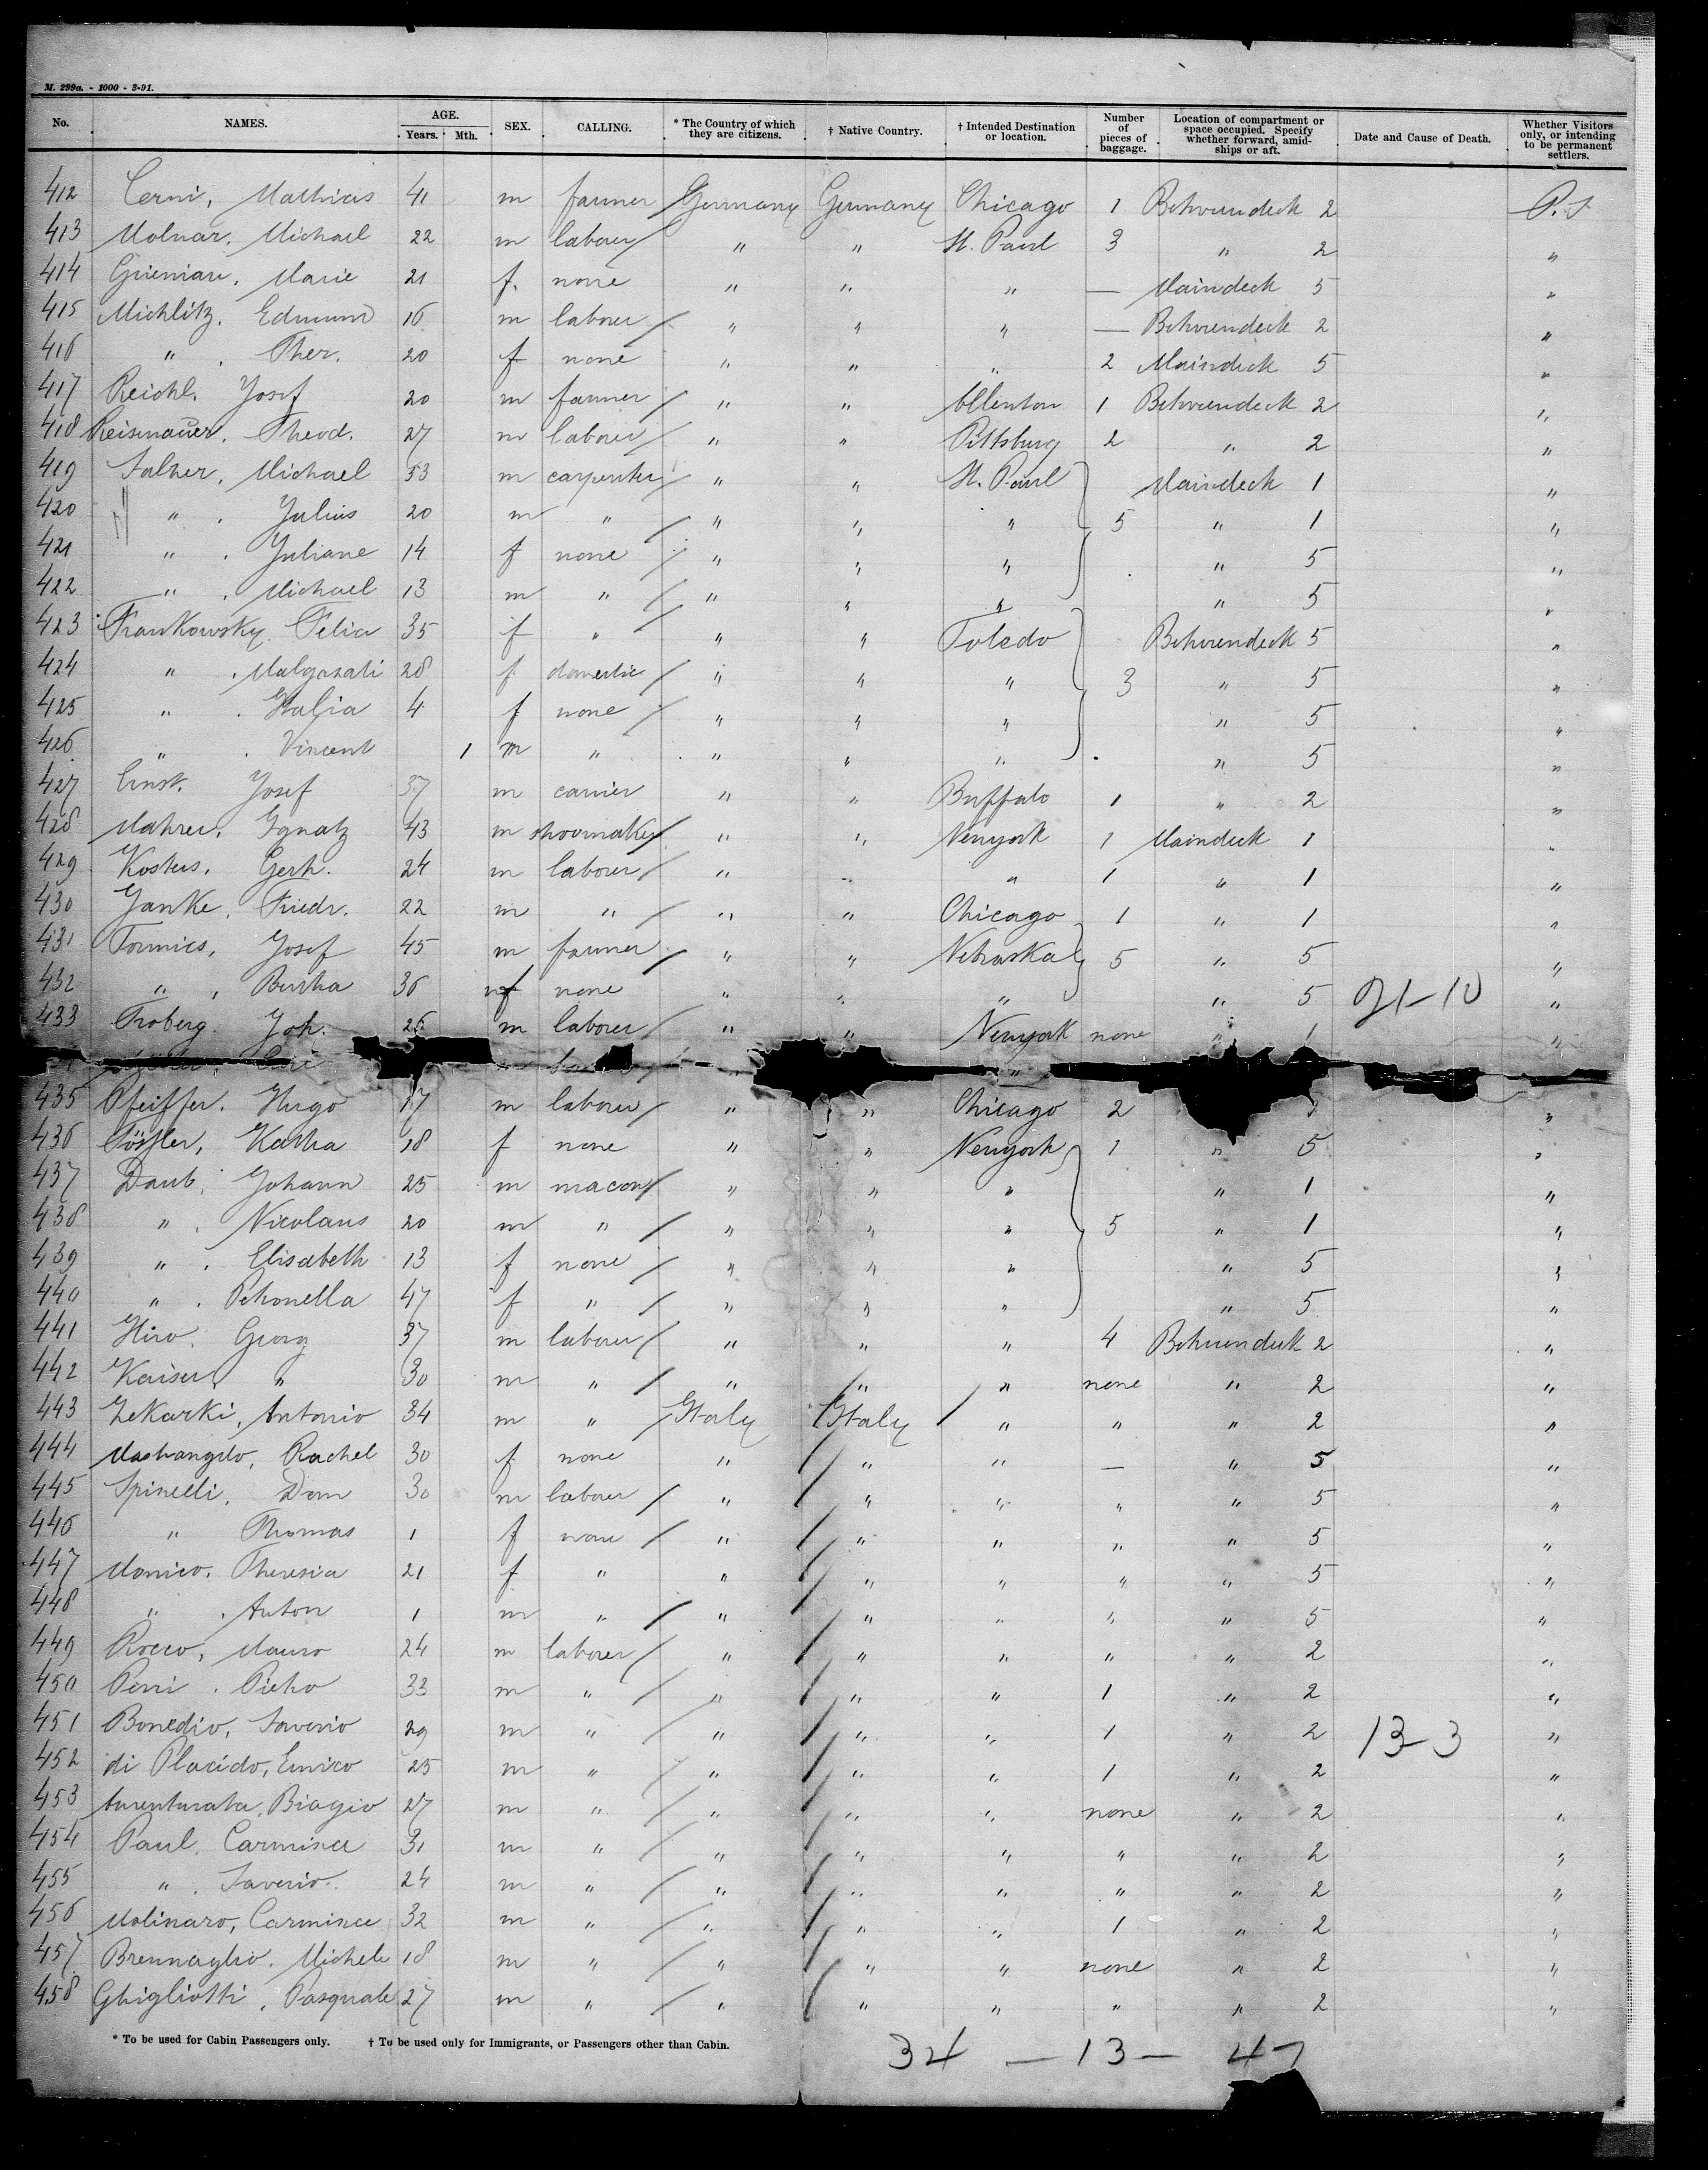 M. 299a. - 1000 - 3-91.
No. NAMES. AGE. Years. Mth. SEX. CALLING. * The Country of which they are citizens. † Native Country. † Intended Destination or location. Number of pieces of baggage. Location of compartment or space occupied. Specify whether forward, amidships or aft. Date and Cause of Death. Whether Visitors only, or intending to be permanent settlers.
412 Cerni, Mathias 41 m farmer Germany Germany Chicago 1 Betweendeck 2 P.S
413 Molnar, Michael 22 m laborer / " " St. Paul 3 " 2 "
414 Marie 21 f. none " " " — Maindeck 5 "
415 Michlitz, Edmund 16 m laborer / " " " — Betweendeck 2 "
416 " . Ther. 20 f none " " " 2 Maindeck 5 "
417 Reichl, Josef 20 m farmer / " " Allenton 1 Betweendeck 2 "
418 Reisenauer, Theod. 27 m laborer / " " Pittsburg 2 " 2 "
419 Salzer, Michael 53 m carpenter / " " St. Paul Maindeck 1 "
420 " . Julius 20 m " / " " " 5 " 1 "
421 " . Juliane 14 f none / " " " " 5 "
422 " . Michael 13 m " / " " " " 5 "
423 Frankowsky, Felia 35 f " / " " Toledo Betweendeck 5 "
424 " . 28 f. domestic / " " " 3 " 5 "
425 " . Julia 4 f none / " " " " 5 "
426 " . Vincent 1 m " " " " " 5 "
427 Ernst, Josef 37 m carrier " " Buffalo 1 " 2 "
428 Mahrer, Ignatz 43 m shoomaker / " " Newyork 1 Maindeck 1 "
429 Kosters, Gerh. 24 m laborer / " " " 1 " 1 "
430 Janke, Friedr. 22 m " / " " Chicago 1 " 1 "
431 Josef 45 m farmer / " " Nebraska 5 " 5 "
432 " , Bertha 36 f none " " " " 5 21-10 "
433 Froberg, Joh. 26 m laborer / " " Newyork none " 1 "
435 Pfeiffer, Hugo 17 m laborer / " " Chicago 2 "
436 Katha 18 f none " " Newyork 1 " 5 "
437 Daub, Johann 25 m macon / " " " " 1 "
438 " . Nicolaus 20 m " / " " " 5 " 1 "
439 " . Elisabeth 13 f none / " " " " 5 "
440 " . Petronella 47 f " / " " " " 5 "
441 Hiro, Georg 37 m laborer / " " " 4 Betweendeck 2 "
442 Kaiser, " 30 m " / " " " none " 2 "
443 Zekarki, Antonio 34 m " / Italy Italy / " " " 2 "
444 Mastrangelo, Rachel 30 f. none " / " " — " 5 "
445 Spinelli, Dom 30 m laborer / " / " " " " 5 "
446 " Thomas 1 f none / " / " " " " 5 "
447 Monico, Theresia 21 f " " / " " " " 5 "
448 " . Anton 1 m " / " / " " " " 5 "
449 Rocco, Mauro 24 m laborer / " / " " " " 2 "
450 Perri . Pietro 33 m " / " / " " 1 " 2 "
451 Bonedio, Saverio 29 m " / " / " " 1 " 2 13-3 "
452 di Placido, Enrico 25 m " / " / " " 1 " 2 "
453 Aventurata, Biagio 27 m " / " / " " none " 2 "
454 Paul, Carmine 31 m " / " / " " " " 2 "
455 " . Saverio. 24 m " / " / " " " " 2 "
456 Molinaro, Carmine 32 m " / " / " " 1 " 2 "
457 Brennaglio, Michele 18 m " / " / " " none " 2 "
458 Ghigliotti, Pasquale 27 m " / " / " " " " 2 "
* To be used for Cabin Passengers only. † To be used only for Immigrants, or Passengers other than Cabin.
34 — 13 — 47